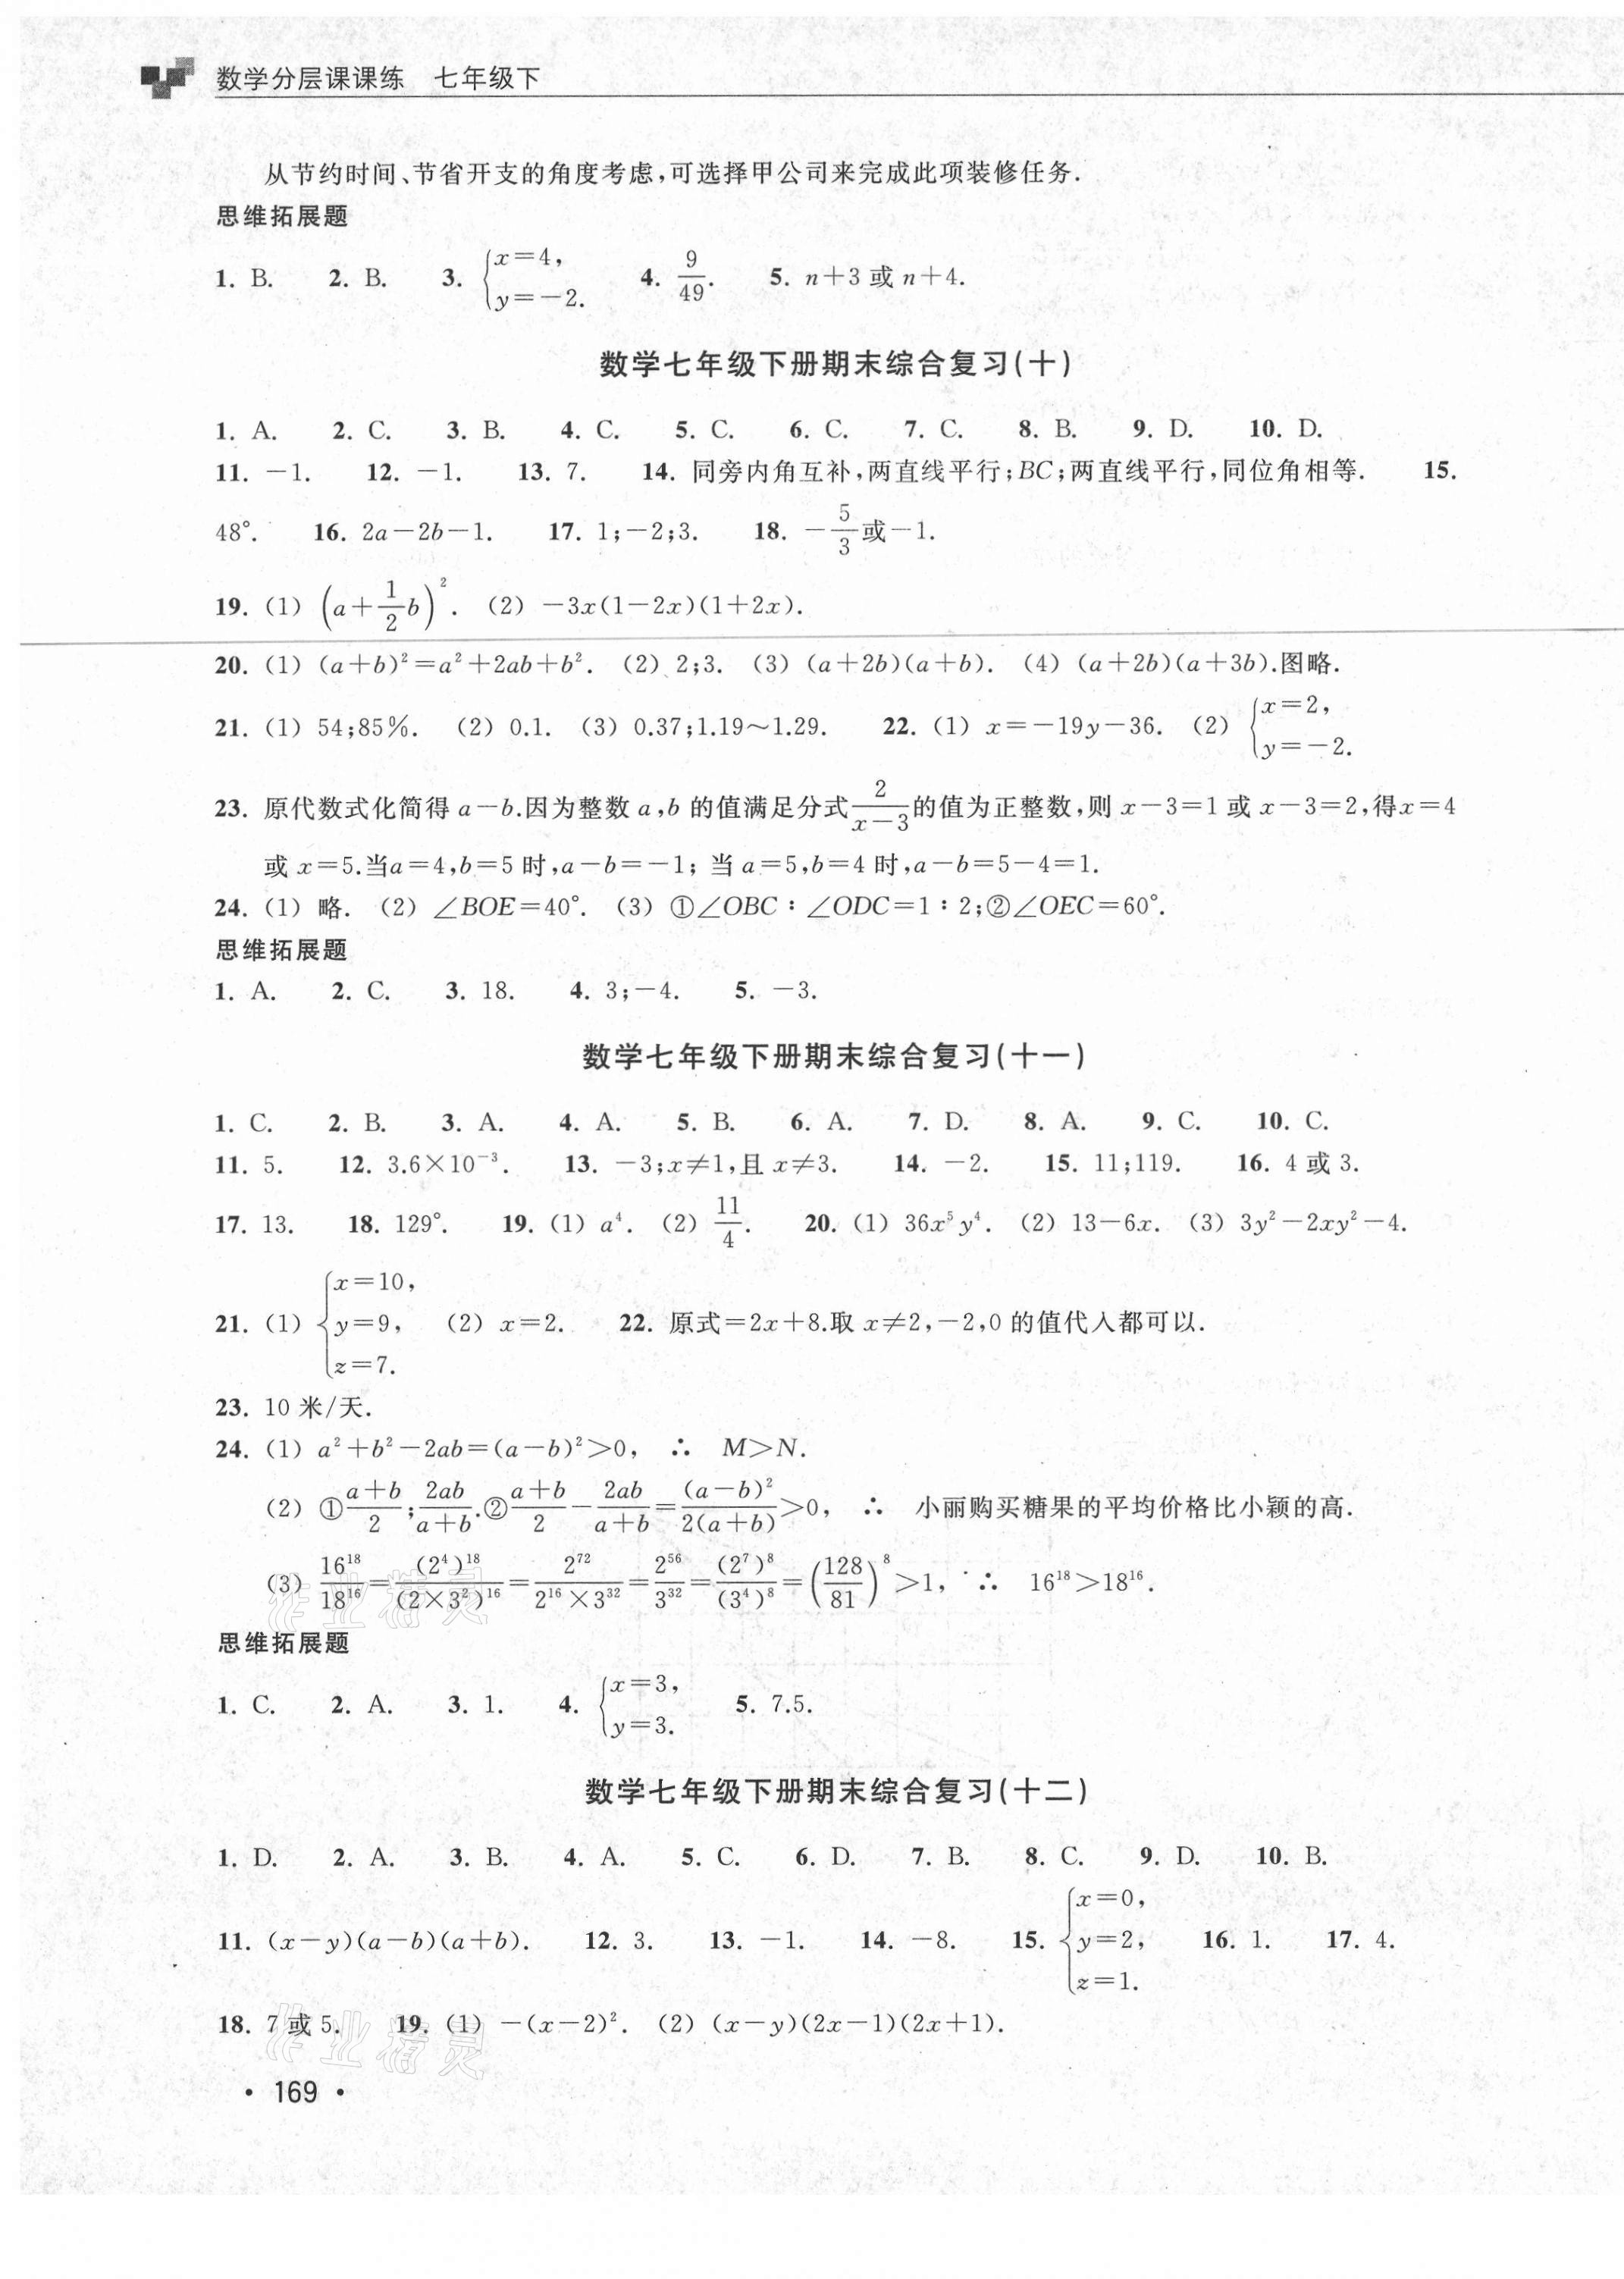 数学分层课课练 七年级下
从节约时间、节省开支的角度考虑,可选择甲公司来完成此项装修任务.
思维拓展题
1. B. 2. B. 3. {x=4, y=-2. 4. 9/49. 5. n+3 或 n+4.
数学七年级下册期末综合复习(十)
1. A. 2. C. 3. B. 4. C. 5. C. 6. C. 7. C. 8. B. 9. D. 10. D.
11. -1. 12. -1. 13. 7. 14. 同旁内角互补,两直线平行;BC;两直线平行,同位角相等. 15.
48°. 16. 2a-2b-1. 17. 1;-2;3. 18. -5/3 或-1.
19. (1) (a+1/2 b)². (2) -3x(1-2x)(1+2x).
20. (1) (a+b)²=a²+2ab+b². (2) 2;3. (3) (a+2b)(a+b). (4) (a+2b)(a+3b).图略.
21. (1) 54;85%. (2) 0.1. (3) 0.37;1.19~1.29. 22. (1) x=-19y-36. (2) {x=2, y=-2.
23. 原代数式化简得 a-b.因为整数 a,b 的值满足分式 2/(x-3) 的值为正整数,则 x-3=1 或 x-3=2,得x=4
或 x=5.当a=4,b=5 时,a-b=-1; 当 a=5,b=4 时,a-b=5-4=1.
24. (1) 略. (2) ∠BOE=40°. (3) ①∠OBC∶∠ODC=1∶2;②∠OEC=60°.
思维拓展题
1. A. 2. C. 3. 18. 4. 3;-4. 5. -3.
数学七年级下册期末综合复习(十一)
1. C. 2. B. 3. A. 4. A. 5. B. 6. A. 7. D. 8. A. 9. C. 10. C.
11. 5. 12. 3.6×10⁻³. 13. -3;x≠1,且 x≠3. 14. -2. 15. 11;119. 16. 4 或 3.
17. 13. 18. 129°. 19. (1) a⁴. (2) 11/4. 20. (1) 36x⁵y⁴. (2) 13-6x. (3) 3y²-2xy²-4.
21. (1) {x=10, y=9, z=7. (2) x=2. 22. 原式=2x+8.取 x≠2,-2,0 的值代入都可以.
23. 10 米/天.
24. (1) a²+b²-2ab=(a-b)²>0, ∴ M>N.
(2) ①(a+b)/2;2ab/(a+b).②(a+b)/2-2ab/(a+b)=(a-b)²/2(a+b)>0, ∴ 小丽购买糖果的平均价格比小颖的高.
(3) 16¹⁸/18¹⁶=(2⁴)¹⁸/(2×3²)¹⁶=2⁷²/(2¹⁶×3³²)=2⁵⁶/3³²=(2⁷)⁸/(3⁴)⁸=(128/81)⁸>1, ∴ 16¹⁸>18¹⁶.
作业精灵
思维拓展题
1. C. 2. A. 3. 1. 4. {x=3, y=3. 5. 7.5.
数学七年级下册期末综合复习(十二)
1. D. 2. A. 3. B. 4. A. 5. C. 6. D. 7. B. 8. C. 9. D. 10. B.
11. (x-y)(a-b)(a+b). 12. 3. 13. -1. 14. -8. 15. {x=0, y=2, z=1. 16. 1. 17. 4.
18. 7 或 5. 19. (1) -(x-2)². (2) (x-y)(2x-1)(2x+1).
作业精灵
• 169 •